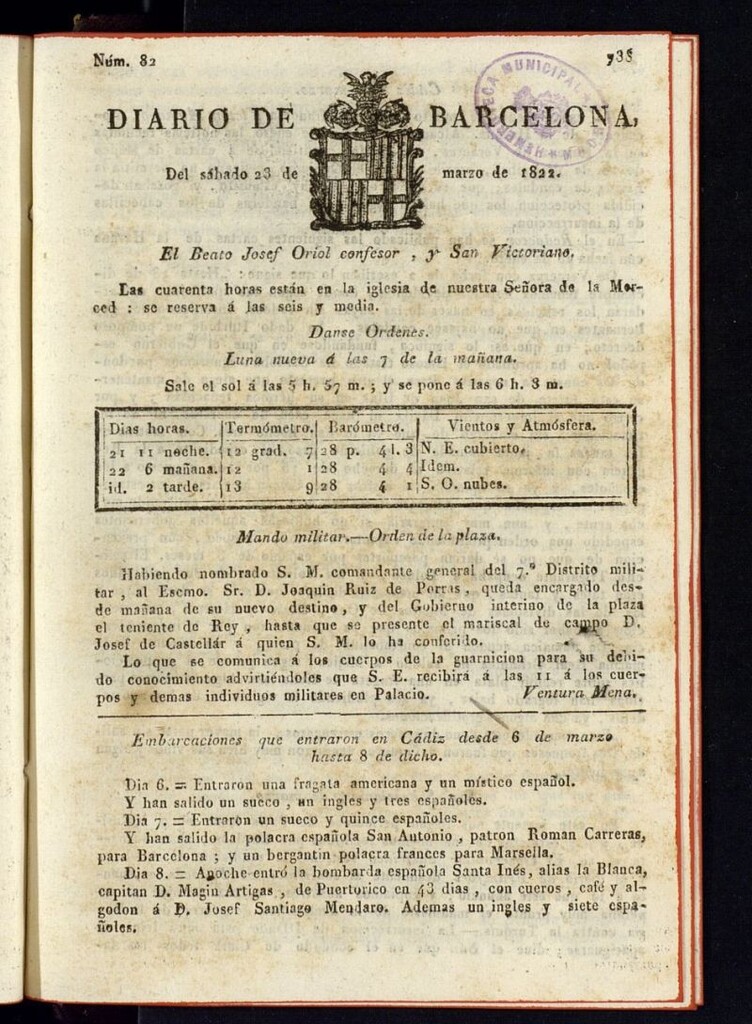 Núm. 82
735
HEMEROTECA MUNICIPAL
DIARIO DE BARCELONA,
Del sábado 23 de marzo de 1822.
El Beato Josef Oriol confesor , y San Victoriano.
Las cuarenta horas están en la iglesia de nuestra Señora de la Mer-
ced : se reserva á las seis y media.
Danse Ordenes.
Luna nueva á las 7 de la mañana.
Sale el sol á las 5 h. 57 m. ; y se pone á las 6 h. 3 m.
Dias horas. Termómetro. Barómetro. Vientos y Atmósfera.
21 11 noche. 12 grad. 7 28 p. 4 l. 3 N. E. cubierto.
22 6 mañana. 12 1 28 4 4 Idem.
id. 2 tarde. 13 9 28 4 1 S. O. nubes.
Mando militar.—Orden de la plaza.
Habiendo nombrado S. M. comandante general del 7.º Distrito mili-
tar , al Escmo. Sr. D. Joaquin Ruiz de Porras , queda encargado des-
de mañana de su nuevo destino , y del Gobierno interino de la plaza
el teniente de Rey , hasta que se presente el mariscal de campo D.
Josef de Castellár á quien S. M. lo ha conferido.
Lo que se comunica á los cuerpos de la guarnicion para su debi-
do conocimiento advirtiéndoles que S. E. recibirá á las 11 á los cuer-
pos y demas individuos militares en Palacio. Ventura Mena.
Embarcaciones que entraron en Cádiz desde 6 de marzo
hasta 8 de dicho.
Dia 6. = Entraron una fragata americana y un místico español.
Y han salido un sueco , un ingles y tres españoles.
Dia 7. = Entraron un sueco y quince españoles.
Y han salido la polacra española San Antonio , patron Roman Carreras,
para Barcelona ; y un bergantin polacra frances para Marsella.
Dia 8. = Anoche entró la bombarda española Santa Inés, alias la Blanca,
capitan D. Magin Artigas , de Puertorico en 43 dias , con cueros , café y al-
godon á D. Josef Santiago Mendaro. Ademas un ingles y siete espa-
ñoles.